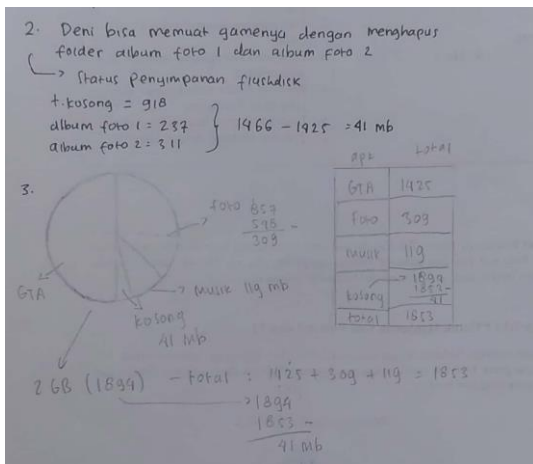 2. Deni bisa memuat gamenya dengan menghapus
folder album foto 1 dan album foto 2
Status penyimpanan flashdisk
t.kosong = 918
album foto 1 = 237
album foto 2 = 311
1466 - 1425 = 41 mb
3.
foto 857
548 -
309
musik 119 mb
kosong
41 Mb
GTA
apk total
GTA 1425
Foto 309
musik 119
kosong 1894
1853 -
41
total 1853
2 GB (1894) - total : 1425 + 309 + 119 = 1853
1894
1853 -
41 mb